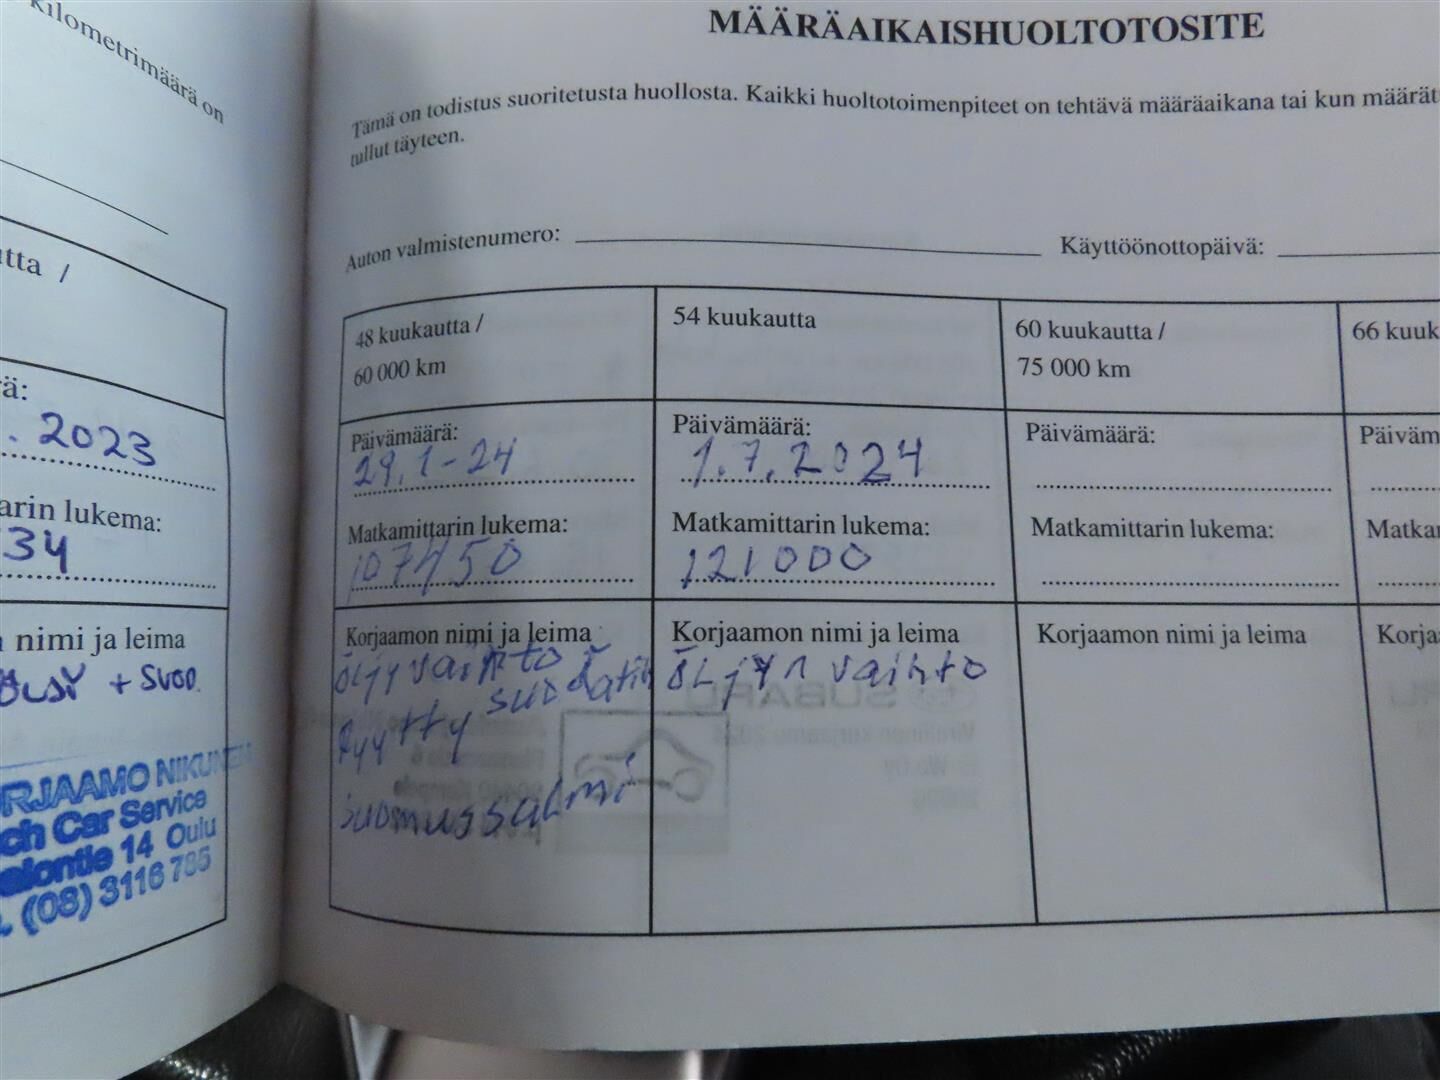 kilometrimäärä on
utta /
rä:
. 2023
arin lukema:
34
nimi ja leima
+ SUOD.
RJAAMO NIKUNEN
ch Car Service
lontie 14 Oulu
. (08) 3116 785
MÄÄRÄAIKAISHUOLTOTOSITE
Tämä on todistus suoritetusta huollosta. Kaikki huoltotoimenpiteet on tehtävä määräaikana tai kun määrät
tullut täyteen.
Auton valmistenumero:
Käyttöönottopäivä:
48 kuukautta /
60 000 km
Päivämäärä:
29.1-24
Matkamittarin lukema:
107450
Korjaamon nimi ja leima
öljyvaihto
suodatin
Suomussalmi
54 kuukautta
Päivämäärä:
1.7.2024
Matkamittarin lukema:
121000
Korjaamon nimi ja leima
öljyn vaihto
SUBARU
60 kuukautta /
75 000 km
Päivämäärä:
Matkamittarin lukema:
Korjaamon nimi ja leima
66 kuuk
Päiväm
Matka
Korja